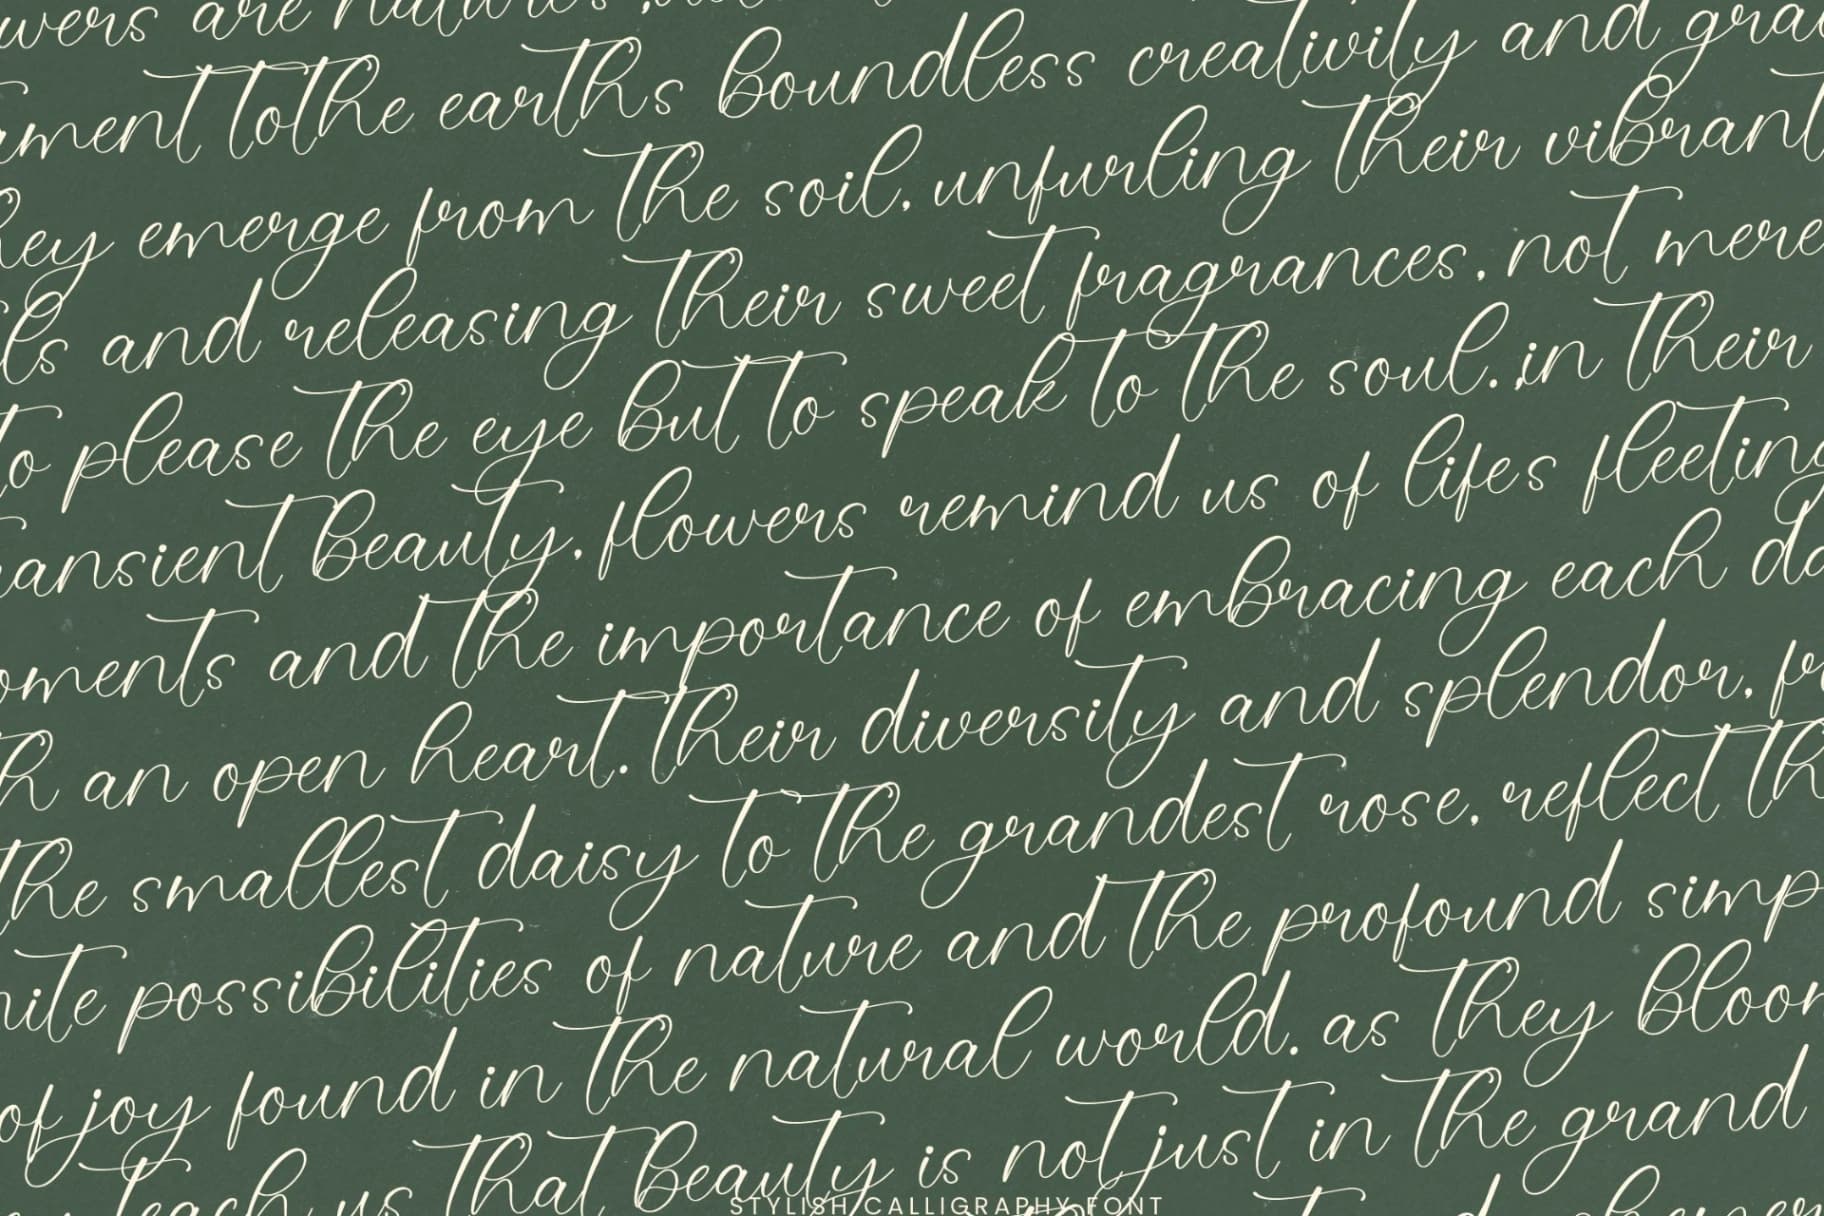 are natures
tothe earths boundless creativity and
emerge from the soil, unfurling their vibrant
and releasing their sweet fragrances, not mere
to please the eye but to speak to the soul.,in their
ansient beauty, flowers remind us of lifes fleeting
oments and the importance of embracing each da
h an open heart. their diversity and splendor, fr
the smallest daisy to the grandest rose, reflect th
nite possibilities of nature and the profound simp
of joy found in the natural world. as they bloom
teach us that beauty is not just in the grand
STYLISH CALLIGRAPHY FONT